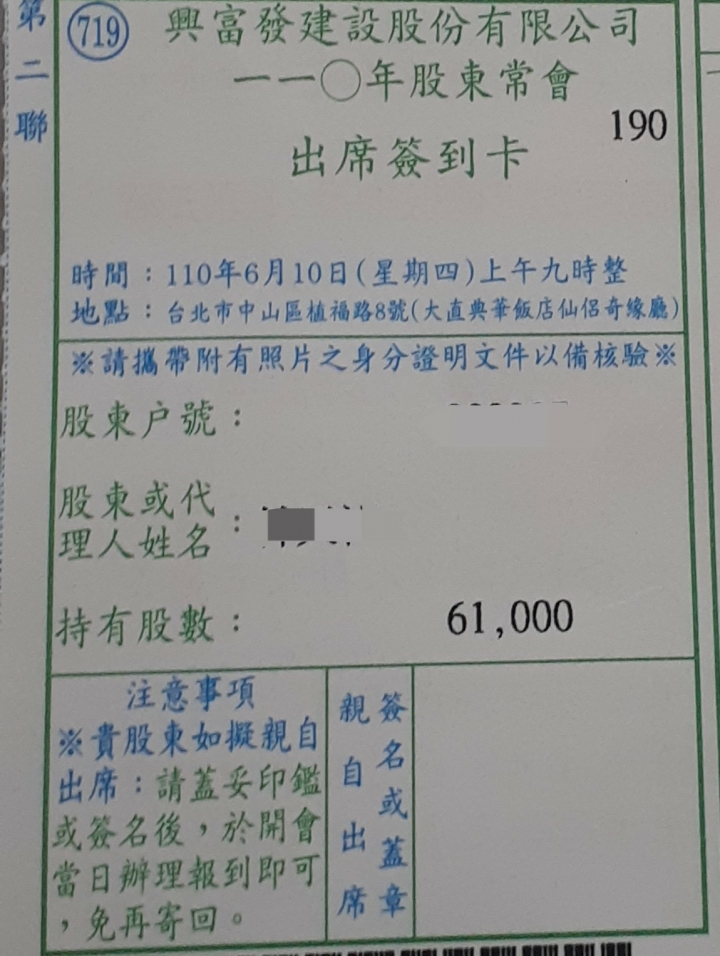 第二聯
719
興富發建設股份有限公司
一一〇年股東常會
190
出席簽到卡
時間：110年6月10日(星期四)上午九時整
地點：台北市中山區植福路8號(大直典華飯店仙侶奇緣廳)
※請攜帶附有照片之身分證明文件以備核驗※
股東户號：
股東或代
理人姓名：
持有股數：
61,000
注意事項
※貴股東如擬親自
出席：請蓋妥印鑑
或簽名後，於開會
當日辦理報到即可
，免再寄回。
親自出席
簽名或蓋章